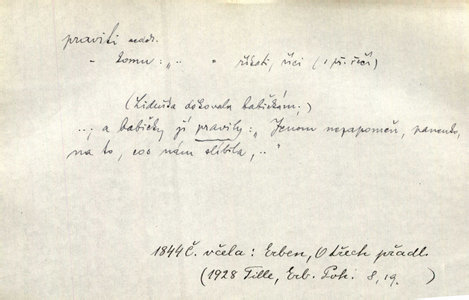 praviti nedk.
– komu: „.. “ říkati, říci (i př. řeči)
(Liduška děkovala babičkám;)
..; a babičky jí pravily: „Jenom nezapomeň, panenko,
na to, cos nám slíbila, .. “
1844 Č. včela: Erben, O třech přadl.
(1928 Tille, Erb. Poh. 8, 19. )